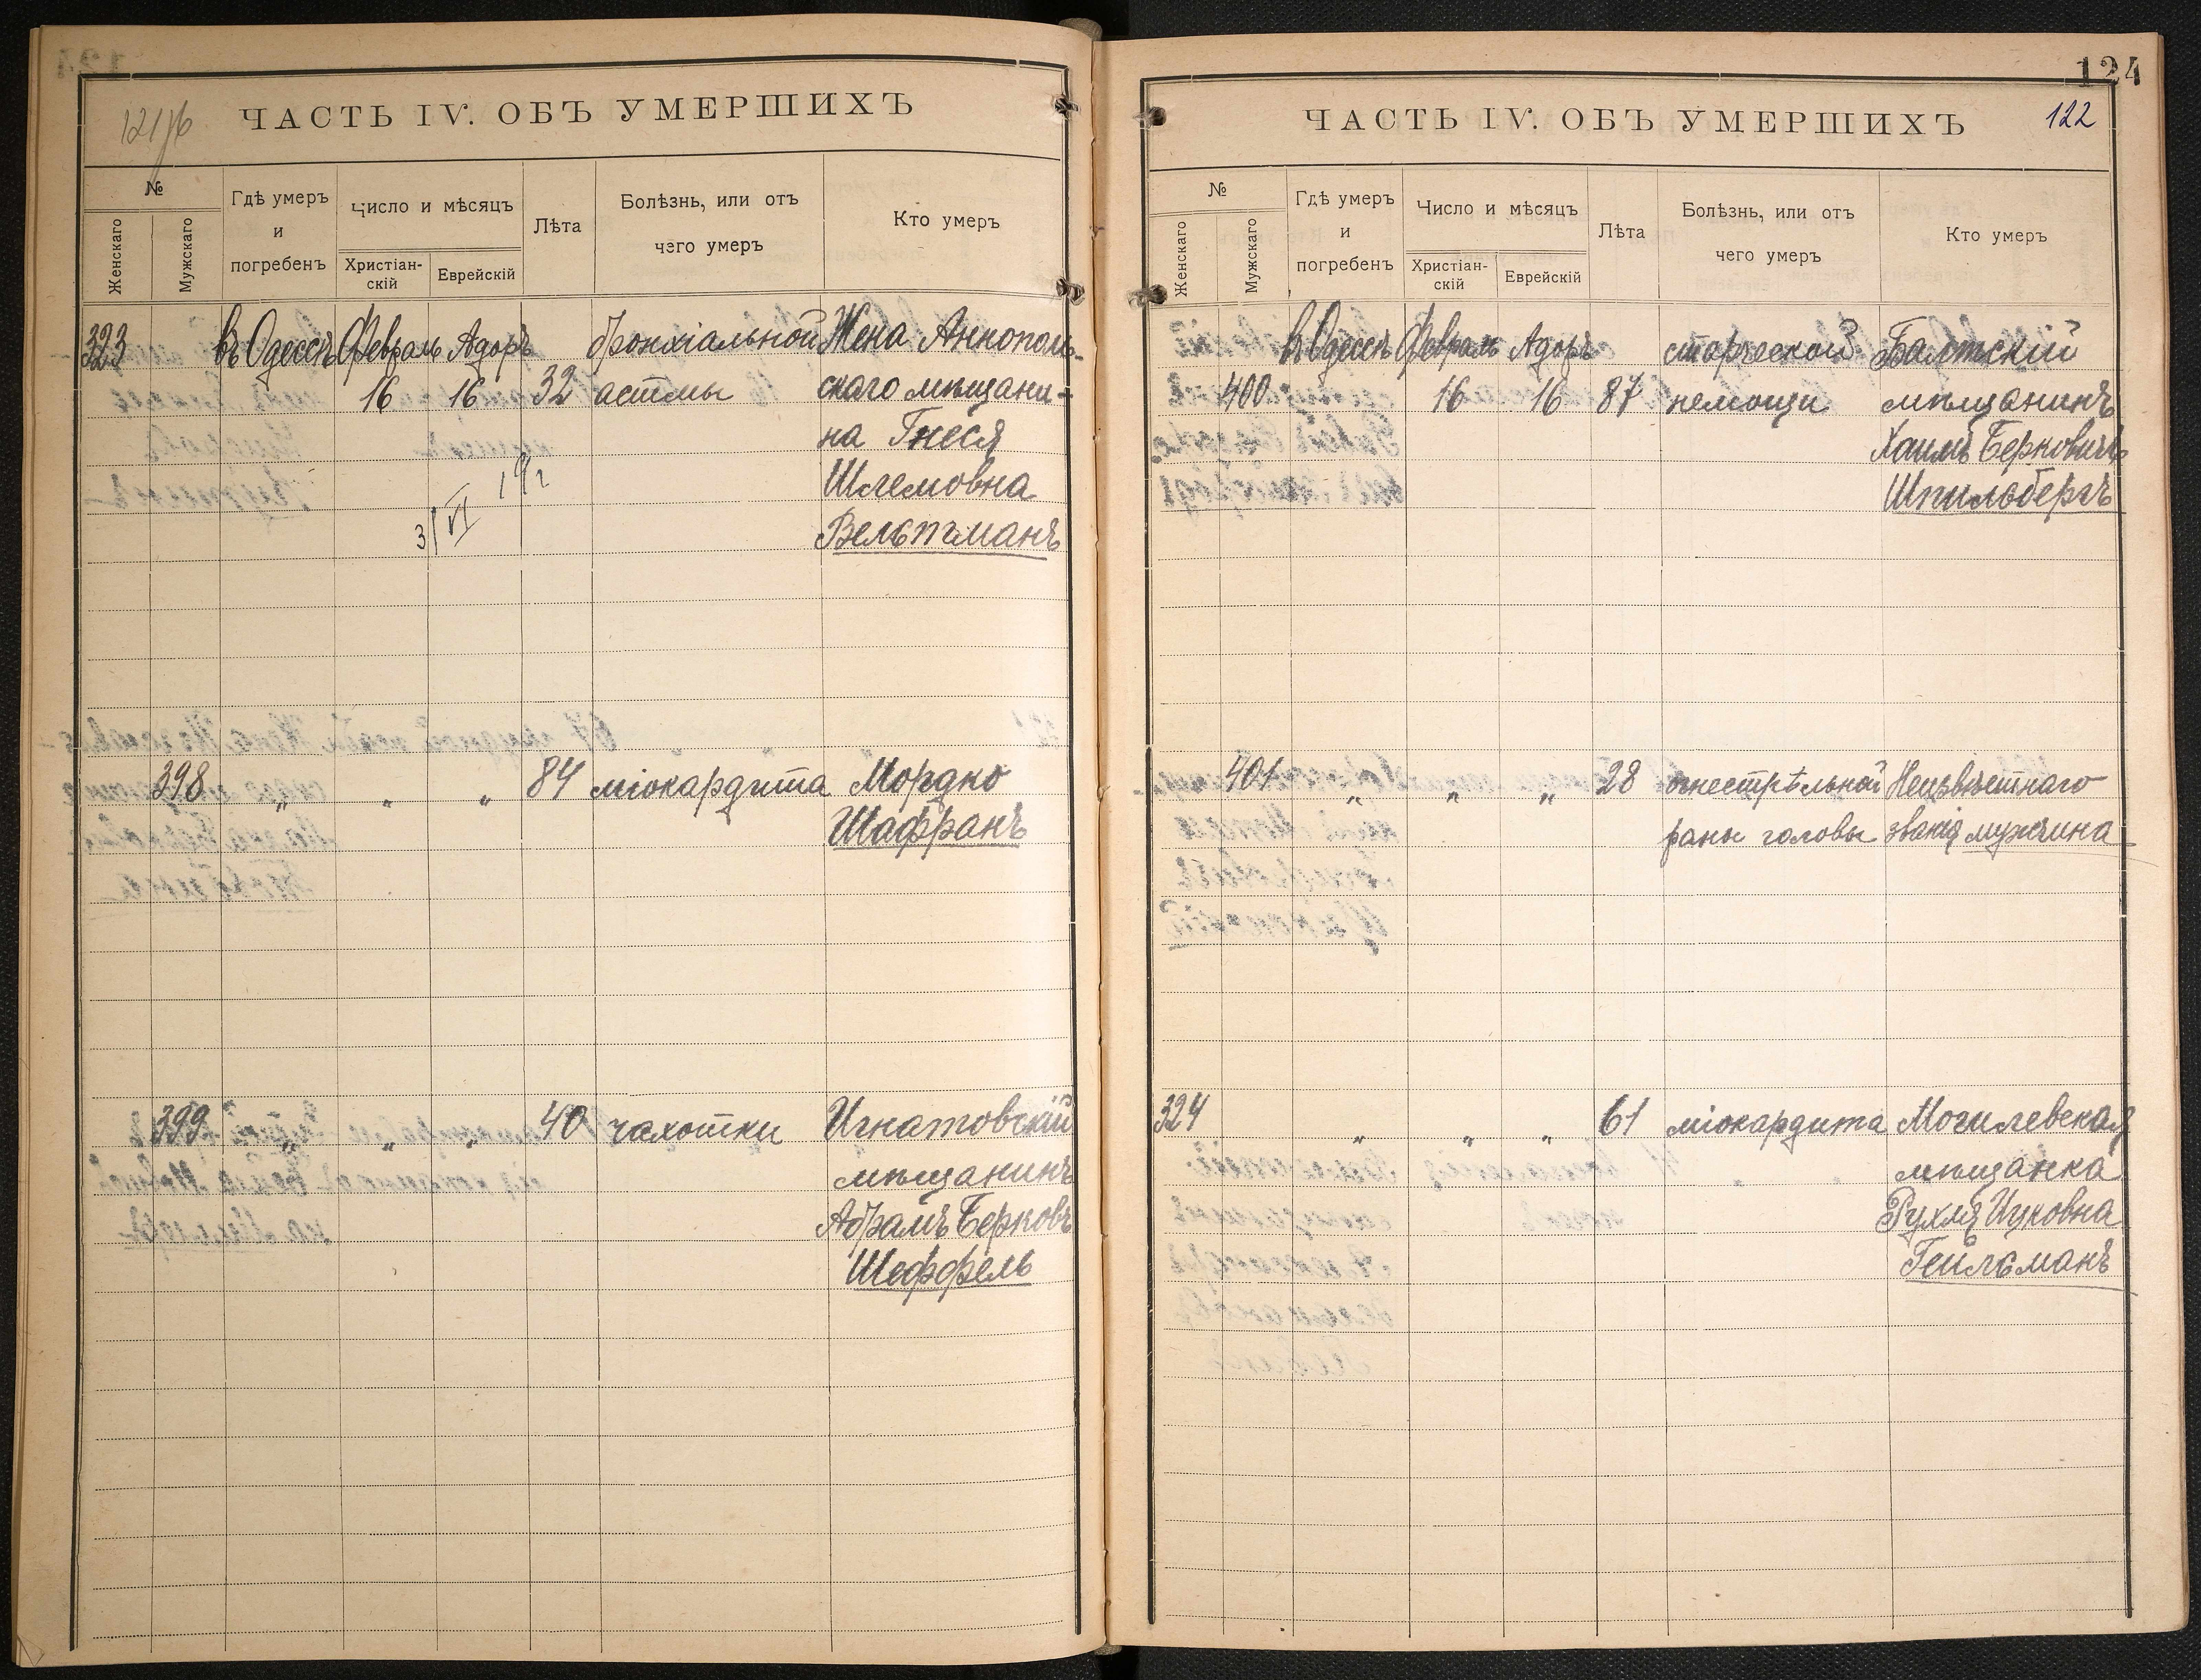 121об
ЧАСТЬ IV. ОБЪ УМЕРШИХЪ
№
Женскаго
Мужскаго
Гдѣ умеръ
и
погребенъ
Число и мѣсяцъ
Христіан-
скій
Еврейскій
Лѣта
Болѣзнь, или отъ
чего умеръ
Кто умеръ
323 въ Одессѣ Февраль Адоръ бронхіальной Жена Аннополь-
16 16 32 астмы скаго мѣщани-
на Гнеся
Шлемовна
3/VI
Вельтманъ
398 „ „ „ 84 міокардита Мордко
Шафранъ
399 „ „ „ 40 чахотки Игнатовскій
мѣщанинъ
Абрамъ Берковъ
Шеффель
124
ЧАСТЬ IV. ОБЪ УМЕРШИХЪ
122
№
Женскаго
Мужскаго
Гдѣ умеръ
и
погребенъ
Число и мѣсяцъ
Христіан-
скій
Еврейскій
Лѣта
Болѣзнь, или отъ
чего умеръ
Кто умеръ
въ Одессѣ Февраль Адоръ старческой Балтскій
400 16 16 87 немощи мѣщанинъ
Хаимъ Берковичъ
Шпильбергъ
401 „ „ „ 28 огнестрѣльной Неизвѣстнаго
раны головы званія мужчина
324 „ „ „ 61 міокардита Могилевская
мѣщанка
Рухля Ицковна
Гейльманъ